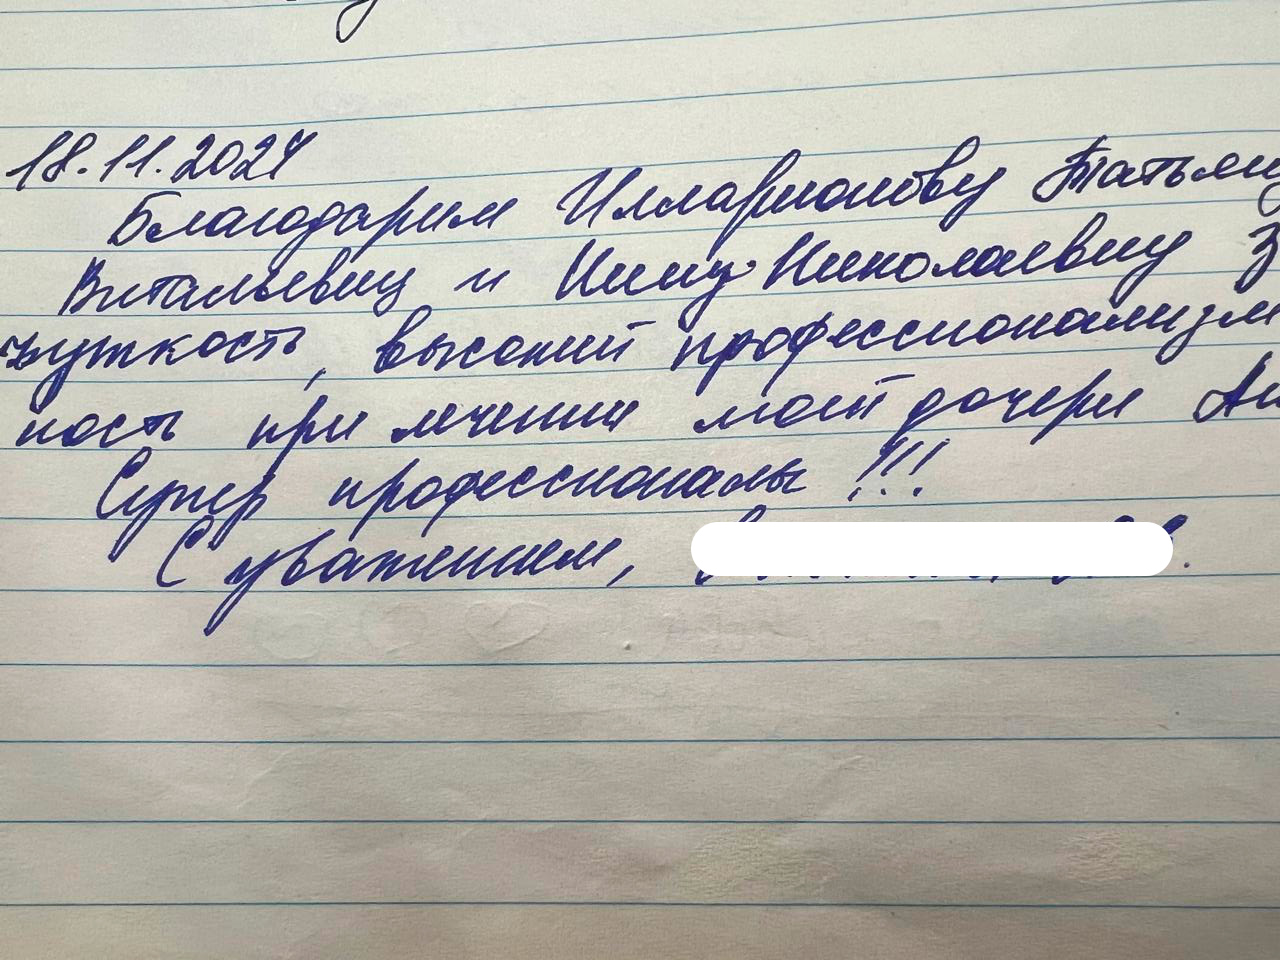 18.11.2024
Благодарим Илларионову Татьяну
Витальевну и Нину Николаевну з
чуткость, высокий профессионализм
ность при лечении моей дочери Ан
Супер профессионалы!!!
С уважением,